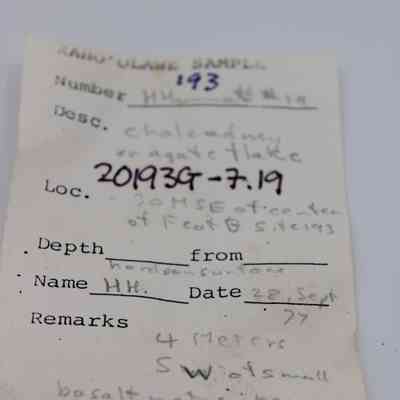 KAHO'OLAWE SAMPLE
193
Number HH
Desc. chalcedney
or agate flake
20193G-7.19
Loc. 20 M SE of center
of Feat G Site 193
Depth from
hardpan surface
Name HH. Date 28, Sept
77
Remarks 4 Meters
SW. of small
basalt